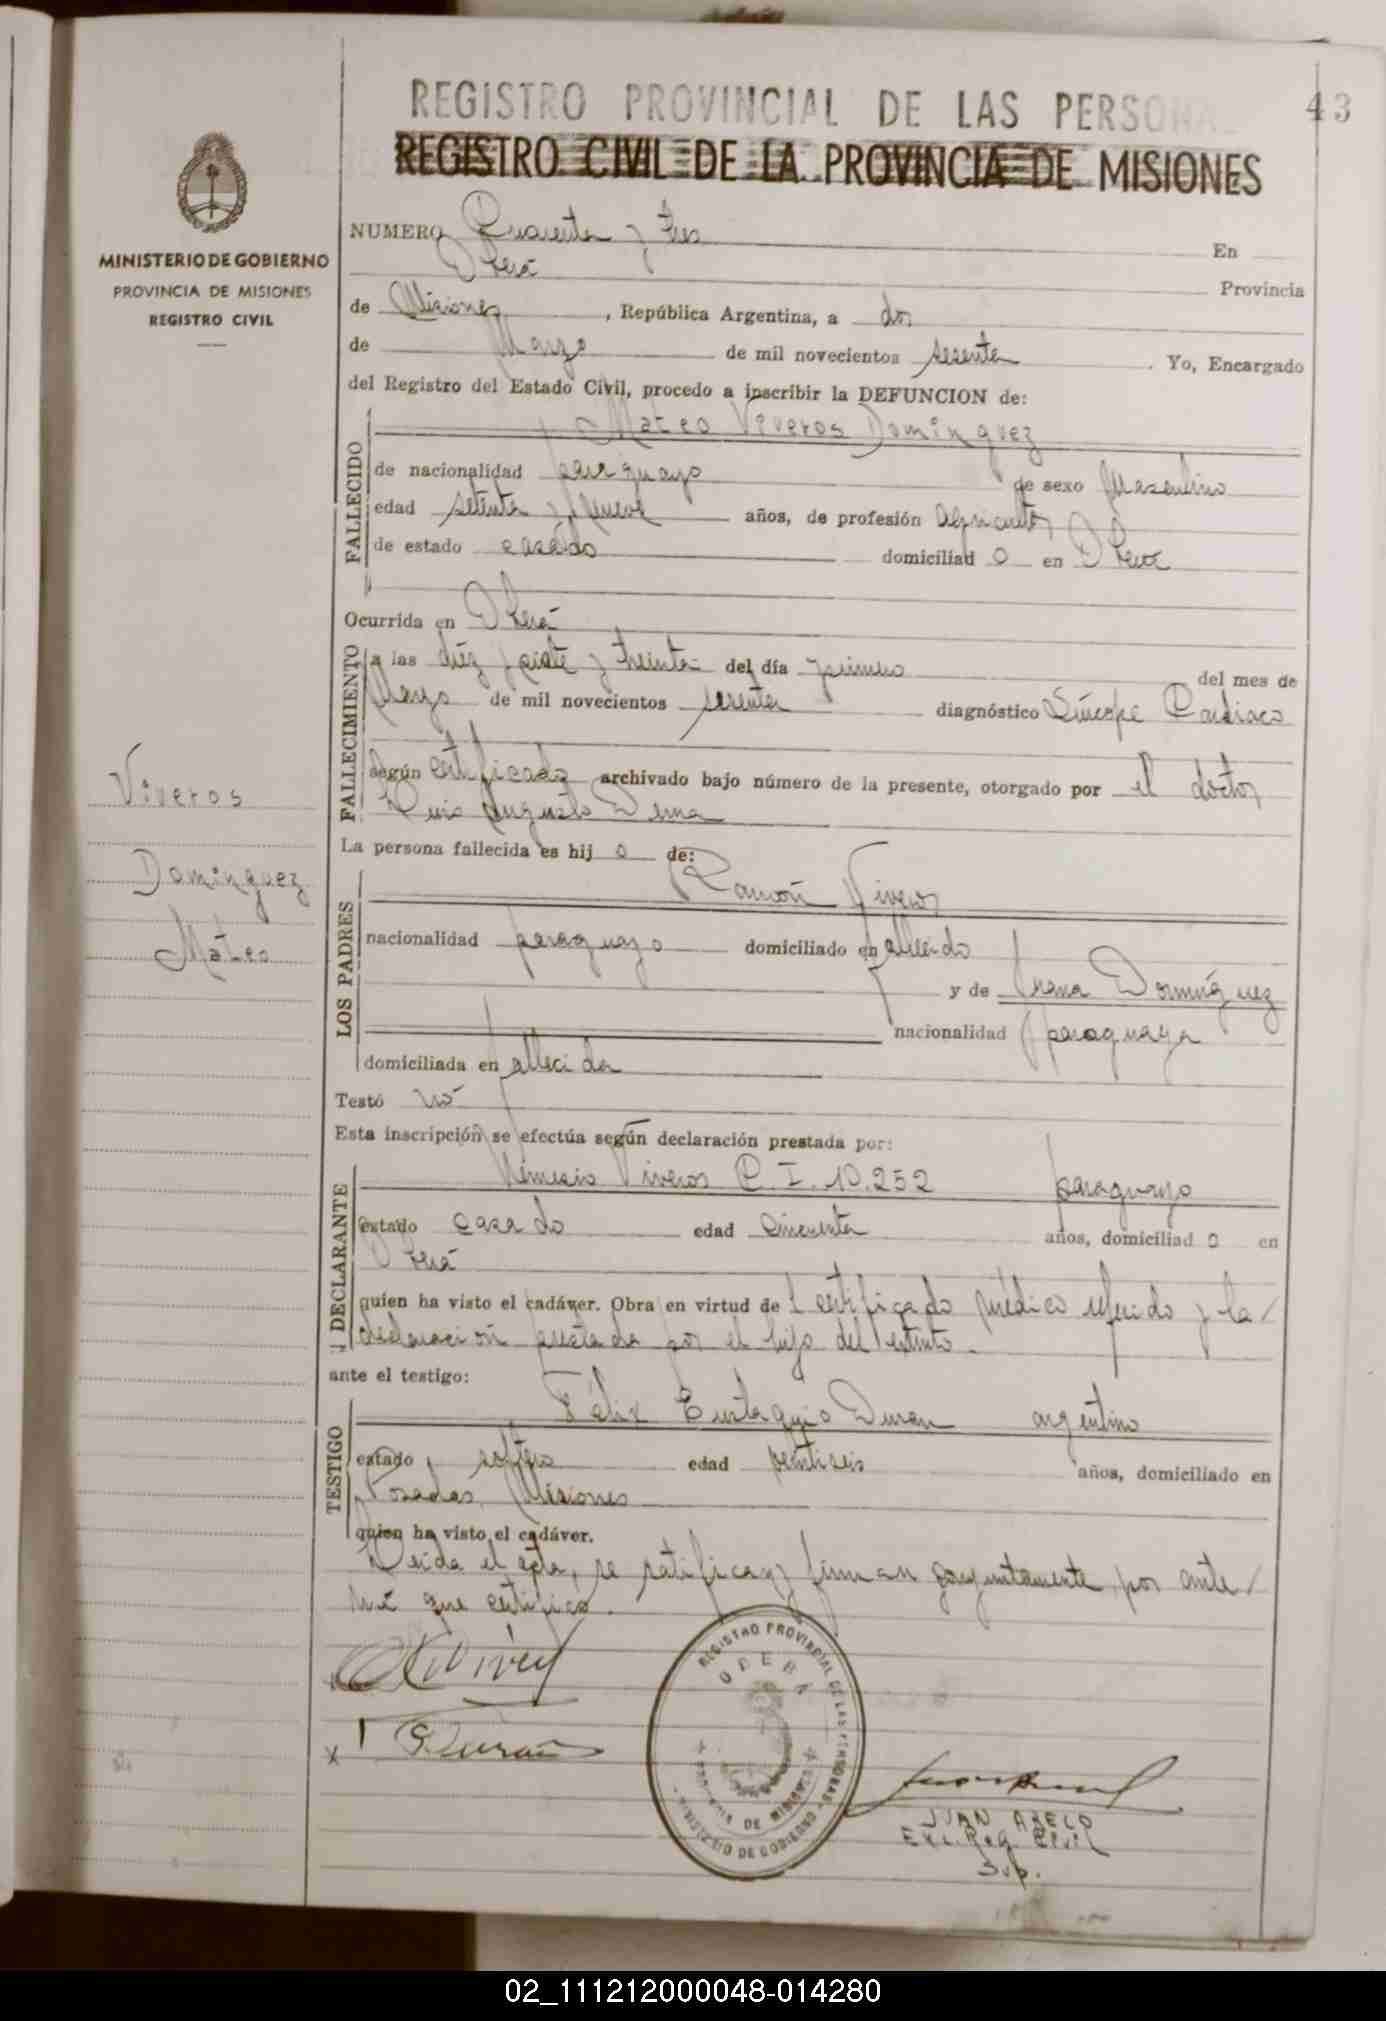 REGISTRO PROVINCIAL DE LAS PERSONA
43
REGISTRO CIVIL DE LA PROVINCIA DE MISIONES
MINISTERIO DE GOBIERNO
PROVINCIA DE MISIONES
REGISTRO CIVIL
NUMERO Cuarenta y tres En
Oberá Provincia
de Misiones, República Argentina, a dos
de Marzo de mil novecientos sesenta. Yo, Encargado
del Registro del Estado Civil, procedo a inscribir la DEFUNCION de:
FALLECIDO
Mateo Viveros Domínguez
de nacionalidad paraguayo de sexo Masculino
edad setenta y nueve años, de profesión Agricultor
de estado casado domiciliad o en Oberá
Ocurrida en Oberá
FALLECIMIENTO
a las diez y siete y treinta del día primero del mes de
Marzo de mil novecientos sesenta diagnóstico Síncope Cardíaco
según certificado archivado bajo número de la presente, otorgado por el doctor
Luis Augusto Derna
La persona fallecida es hij o de:
LOS PADRES
Ramón Viveros
nacionalidad paraguayo domiciliado en fallecido
y de Juana Domínguez
nacionalidad paraguaya
domiciliada en fallecida
Testó no
Esta inscripción se efectúa según declaración prestada por:
DECLARANTE
Nemesio Viveros C. I. 10.252 paraguayo
estado casado edad cincuenta años, domiciliad o en
Oberá
quien ha visto el cadáver. Obra en virtud de certificado médico referido y la
declaración prestada por el hijo del extinto.
ante el testigo:
TESTIGO
Félix Eustaquio Duran argentino
estado soltero edad veintiseis años, domiciliado en
Posadas Misiones
quien ha visto el cadáver.
Leida el acta, se ratifican y firman conjuntamente, por ante
mí que certifico.
Viveros
Domínguez
Mateo
REGISTRO PROVINCIAL DE LAS PERSONAS
OBERA
PROVINCIA DE MISIONES
MINISTERIO DE GOBIERNO
x Duran
JUAN
Enc. Reg. Civil
Sup.
02_111212000048-014280